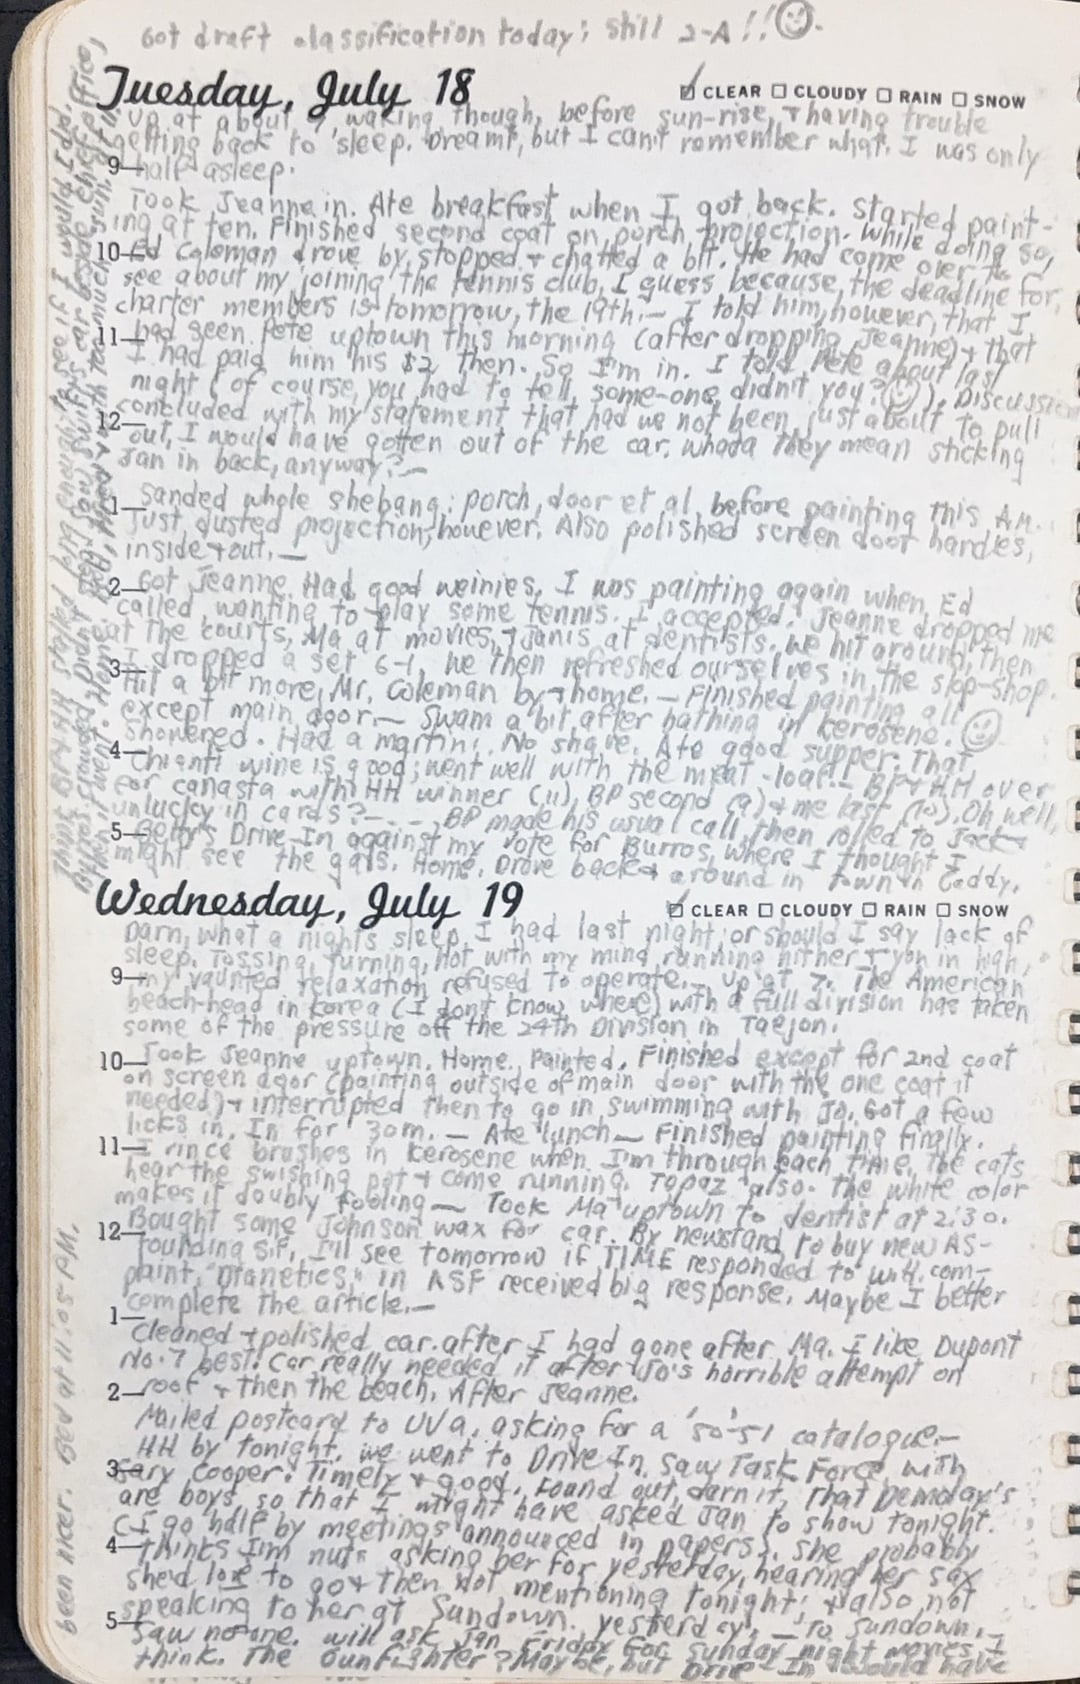 Got draft classification today; still 2-A!!
Tuesday, July 18
CLEAR CLOUDY RAIN SNOW
Up at about 7, waking though, before sun-rise, + having trouble
getting back to sleep. Dreamt, but I can't remember what. I was only
9 half asleep.
Took Jeanne in. Ate breakfast when I got back. Started paint-
ing at ten. Finished second coat on porch projection. While doing so,
10 Ed Coleman drove by, stopped + chatted a bit. He had come over to
see about my joining the tennis club, I guess because, the deadline for
charter members is tomorrow, the 19th. — I told him, however, that I
11 had seen Pete uptown this morning (after dropping Jeanne) + that
I had paid him his $2 then. So I'm in. I told Pete about last
night (of course, you had to tell some-one, didn't you?). Discussion
12 concluded with my statement that had we not been just about to pull
out, I would have gotten out of the car. Whada they mean sticking
Jan in back, anyway? —
1 Sanded whole shebang: porch, door et al. before painting this AM.
Just dusted projection, however. Also polished screen door hardies,
inside + out. —
2 Got Jeanne. Had good weinies. I was painting again when Ed
called, wanting to play some tennis. I accepted. Jeanne dropped me
at the courts, Ma at movies, + Janis at dentists. We hit around, then
3 I dropped a set 6-1. We then refreshed ourselves in the slop-shop.
Hit a bit more, Mr. Coleman by + home. — Finished painting all
except main door. — Swam a bit after bathing in kerosene.
4 Showered. Had a martini. No shave. Ate good supper. That
Chianti wine is good; went well with the meat-loaf!— BP + HH over
for canasta with HH winner (11), BP second (9) + me last (10). Oh well,
unlucky in cards? — . . — BP made his usual call, then rolled to Jack +
5 Betty's Drive-In against my vote for Burros, where I thought I
might see the gals. Home. Drove back + around in town in Caddy.
Wednesday, July 19
CLEAR CLOUDY RAIN SNOW
Darn, what a nights sleep I had last night; or should I say lack of
sleep. Tossing, turning, hot with my mind running hither + yon in high,
9 my vaunted relaxation refused to operate. — Up at 7. The American
beach-head in Korea (I don't know where) with a full division has taken
some of the pressure off the 24th Division in Taejon.
10 Took Jeanne uptown. Home. Painted. Finished except for 2nd coat
on screen door (painting outside of main door with the one coat it
needed) + interrupted then to go in swimming with Jo. Got a few
licks in. In for 30m. — Ate lunch — Finished painting finally.
11 I rince brushes in kerosene when I'm through each time. The cats
hear the swishing pat + come running. Topaz also. The white color
makes it doubly fooling — Took Ma uptown to dentist at 2:30.
12 Bought some Johnson wax for car. By newstand to buy new AS-
tounding S.F. I'll see tomorrow if TIME responded to will. com-
paint, "Dianetics," in ASF received big response. Maybe I better
1 complete the article. —
Cleaned + polished car after I had gone after Ma. I like Dupont
No. 7 best. Car really needed it after Jo's horrible attempt on
2 roof + then the beach. After Jeanne.
Mailed postcard to UVa, asking for a '50-'51 catalogue. —
HH by tonight. We went to Drive In. Saw Task Force with
3 Gary Cooper. Timely + good. Found out, darn it, that Demolay's
are boys, so that I might have asked Jan to show tonight.
(I go half by meetings announced in papers). She probably
4 thinks I'm nuts asking her for yesterday, hearing her say
she'd love to go + then not mentioning tonight; + also not
speaking to her at Sundown yesterday. — To Sundown. —
5 Saw no-one. Will ask Jan Friday for Sunday night movies, I
think. The Gunfighter? Maybe, but Drive-In would have
been nicer. Bed at 11:05 PM.